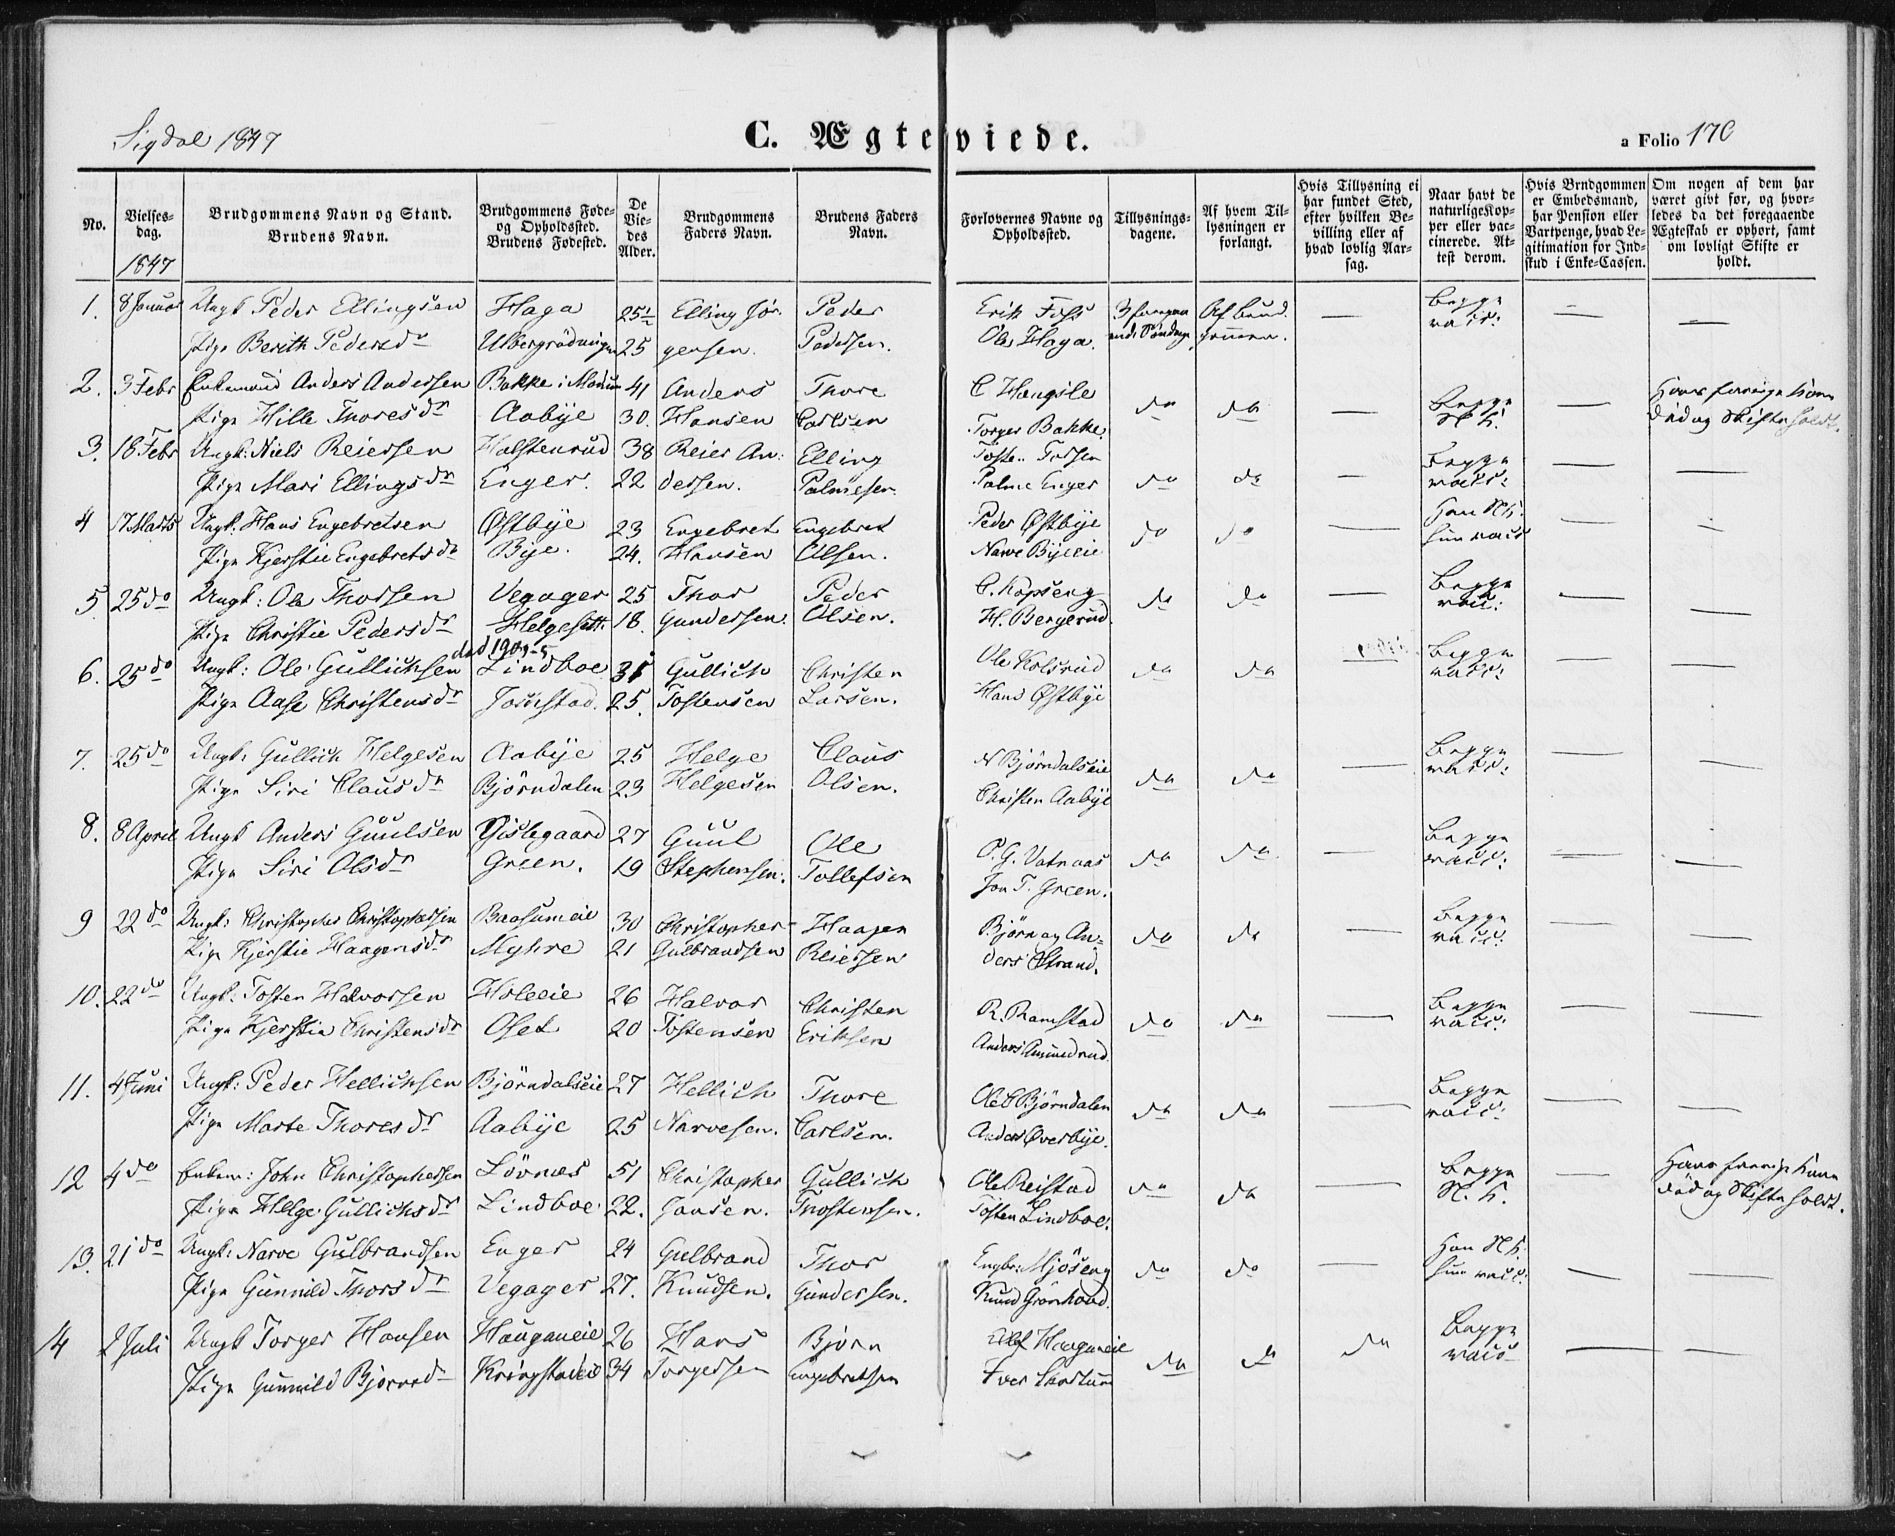 Sigdal 1847
C. Ægteviede.
a Folio 170
No.
Vielsesdag. 1847
Brudgommens Navn og Stand. Brudens Navn.
Brudgommens Føde- og Opholdssted. Brudens Fødested.
De Viedes Alder.
Brudgommens Faders Navn.
Brudens Faders Navn.
Forlovernes Navne og Opholdssted.
Tillysningsdagene.
Af hvem Tillysningen er forlangt.
Hvis Tillysning ei har fundet Sted, efter hvilken Bevilling eller af hvad lovlig Aarsag.
Naar havt de naturlige Kopper eller vaccinerede. Attest derom.
Hvis Brudgommen er Embedsmand, har Pension eller Vartpenge, hvad Legitimation for Indskud i Enke-Cassen.
Om nogen af dem har været givt før, og hvorledes da det foregaaende Ægteskab er ophørt, samt om lovligt Skifte er holdt.
1. 8 Januar Ungk Peder Ellingsen Haga 25½ Elling Jör- Peder Erik Foss 3 foregaa Af Brud. — Begge — —
Pige Berith Pedersdr 25 gensen. Pedersen. Ole Haga. ende Søndage gommen. vacc:
2. 3 Febr Enkemand Anders Andersen Bakke i Modum 41 Anders Thore C Haugsle do do — Begge — Hans forrige Kone
Pige Hille Thoresdr Aabye 30. Hansen Carlsen Torger Bakke. N. K. död og Skifte holdt.
3. 18 Febr Ungk: Niels Reiersen Holstenrud 38 Reier An: Elling Tosten Torsen do do — Begge — —
Pige Mari Ellingsdr Enger. 22 dersen. Palmesen. Palme Enger vacc:
4 17 Marts Ungk: Hans Engebretsen Østbye 23 Engebret Engebret Peder Østbye do do — Han N.K. — —
Pige Kjerstie Engebretsdr Bye. 24. Hansen Olsen. Narve Byeeie hun vacc
5. 25 do Ungk: Ole Thorsen Vegager 25 Thor Peder C. Kopseng do do — Begge — —
Pige Christie Pedersdr Helgesett. 18. Gundersen. Olsen. H. Bergerud. vacc:
död 1909-5
6. 25 do Ungk: Ole Gullichsen Lindboe 31 Gullich Christen Ole Kolsrud do do — Begge — —
Pige Aase Christensdr 25. Tostensen Larsen. Hans Østbye vacc:
7. 25 do Ungk: Gullich Helgesen Aabye 25 Helge Claus N Bjørndalseie do do — Begge — —
Pige Siri Clausdr Bjørndalen 23 Helgesen Olsen. Christen Aabye vacc:
8. 8 April Ungk Anders Guulsen Gislegaard 27 Guul Ole P. G. Vatnaas do do — Begge — —
Pige Siri Olsdr Green. 19 Stephensen. Tollefsen Jon T. Green. vacc:
9 22 do Ungk: Christopher Christophersen Baasumeie 30 Christopher Haagen Bjørn og An= do do — Begge — —
Pige Kjerstie Haagensdr Myhre 21 Gulbrandsen Reiersen ders Strand. vacc:
10. 22 do Ungk: Tosten Halvorsen Holeeie 26 Halvor Christen R. Ramstad do do — Begge — —
Pige Kjerstie Christensdr Oset 20 Tostensen Eriksen Anders Amundrud. vacc:
11. 4 Juni Ungk: Peder Hellichsen Bjørndalseie 27 Hellich Thore Ole C Bjørndalen do do — Begge — —
Pige Marte Thoresdr Aabye 25 Narvesen. Carlsen. Anders Øverbye. vacc:
12 4 do Enkem: John Christophersen Lövnæs 51 Christopher Gullich Ole Reistad do do — Begge — Hans forrige Kone
Pige Helge Gullichsdr Lindboe 22. Jonsen. Trostensen. Tosten Lindboe. N. K. död og Skifte holdt.
13. 21 do Ungk: Narve Gulbrandsen Enger 24 Gulbrand Thor Engbr: Mjöseng do do — Han N.K. — —
Pige Gunnild Thorsdr Vegager 27. Knudsen. Gundersen. Knud Grønhovd. hun vacc:
14 2 Juli Ungk Torger Hansen Haugeneie 26 Hans Bjørn Haugeneie do do do Begge — —
Pige Gunnild Bjørnsdr Kringstadeie 34 Torgersen Engebretsen Iver Skartum vacc